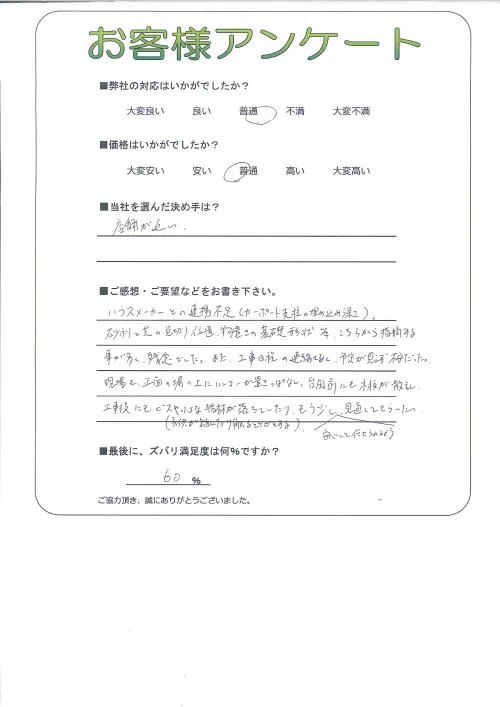 お客様アンケート
■弊社の対応はいかがでしたか？
大変良い 良い 普通 不満 大変不満
■価格はいかがでしたか？
大変安い 安い 普通 高い 大変高い
■当社を選んだ決め手は？
店舗が近い．
■ご感想・ご要望などをお書き下さい。
ハウスメーカーとの連携不足（カーポート支柱の埋め込み深さ）、
砂利と芝の見切り位置、物置きの基礎形状 等、こちらから指摘する
事が多く、残念でした。また、工事日程の連絡もなく、予定が見えず不安だった。
現場も、正面の塀の上にハンマーが置きっぱなし、台風前にも木柱が散乱し
工事後にもビスや 端材が落ちていたり、もう少し、見直してもらいたい．
（子供が
安心して任せられる様）
■最後に、ズバリ満足度は何％ですか？
60 ％
ご協力頂き、誠にありがとうございました。